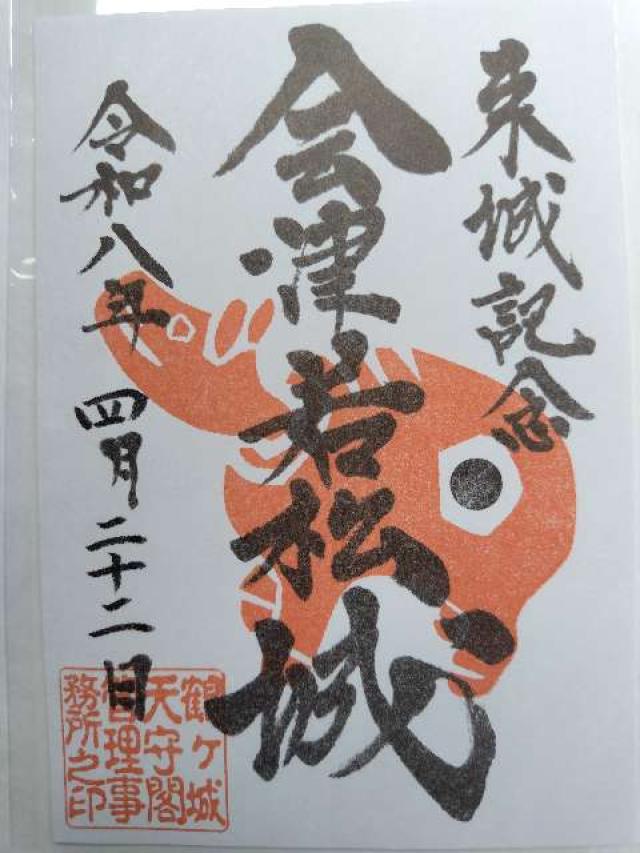 来城記念
会津若松城
令和八年 四月二十二日
鶴ヶ城
天守閣
管理事
務所之印